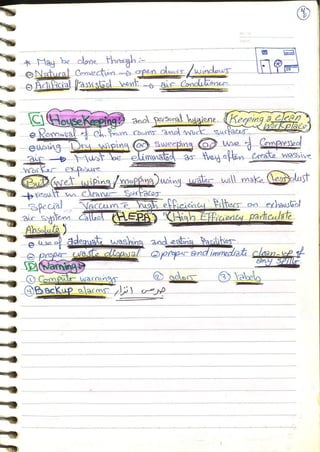 * May be done through :-
⊖ Natural Convection → open doors / windows
⊖ Artificial / assisted vent → air Conditioner
C Housekeeping: and personal hygiene (Keeping a clean workplace)
⊖ Removal of Ch. from and work surfaces
⊖ using Dry wiping or Sweeping or use of Compressed
air → Must be eliminated as they often create massive
worker exposure
But wet wiping / mopping using water will make less dust
→ result in cleaner surfaces
Special Vaccum & high efficiency Filters on exhausted
air system called (HEPA) (High Efficiency particulate
Absolute)
⊖ use of adequate washing and eating facilities
⊖ proper waste disposal ⊖ proper and immediate clean-up of
any spills
D Warning:
① Computer warnings ② odors ③ labels
④ Backup alarms جرس انذار